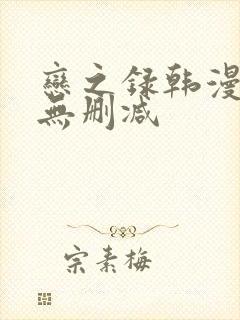 戀之録韩漫
無删减
宗素梅